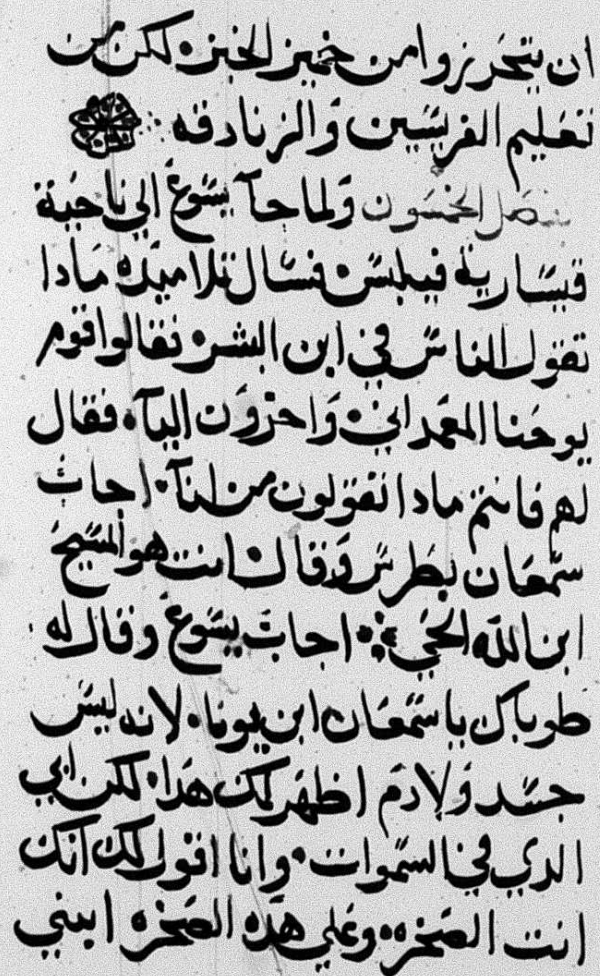 ان يتحرزوا من خمير الخبز لكن من
تعليم الفريسيين والزنادقه
فصل الخمسون ولما جآ يسوع الي ناحية
قيسارية فيلبس فسال تلاميده مادا
تقول الناس في ابن البشر فقالوا قوم
يوحنا المعمداني واخرون اليآ فقال
لهم فانتم مادا تقولون من انآ اجاب
سمعان بطرس وقال انت هو المسيح
ابن الله الحي اجاب يسوع وقال له
طوباك ياسمعان ابن يونا لانه ليس
جسد ولادم اظهر لك هدا لكن ابي
الدي في السموات وانا اقول لك انك
انت الصخره وعلي هده الصخره ابني